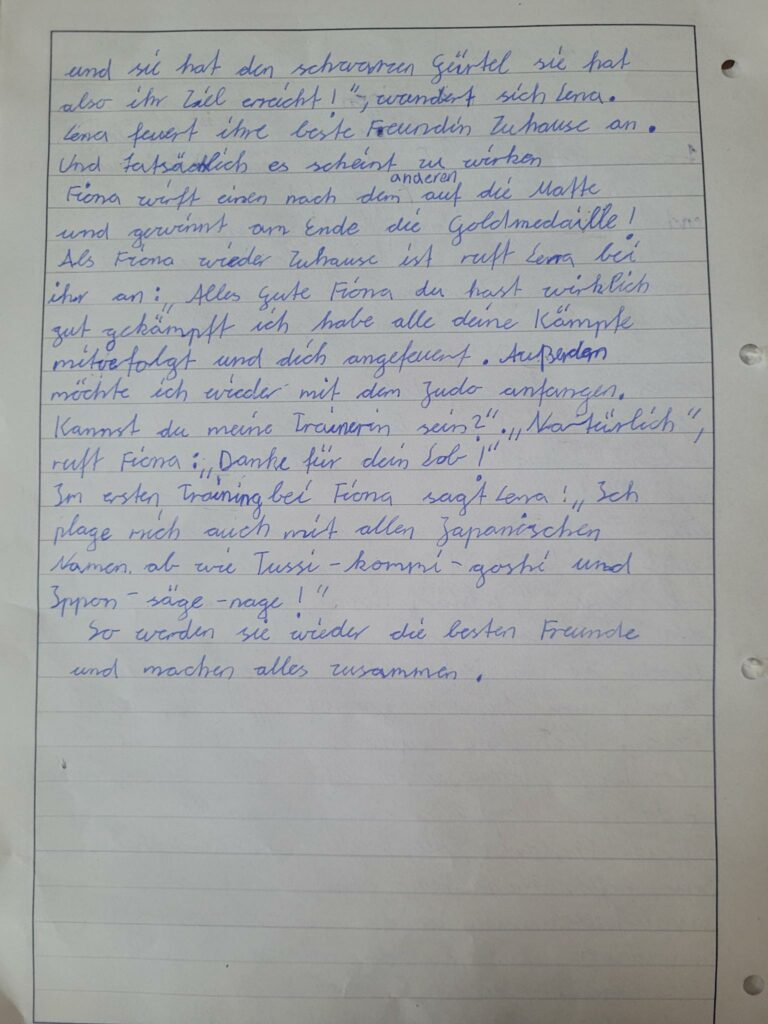 und sie hat den schwarzen Gürtel sie hat
also ihr Ziel erreicht!", wundert sich Lena.
Lena feuert ihre beste Freundin Zuhause an.
Und Tatsächlich es scheint zu wirken
Fiona wirft einen nach dem anderen auf die Matte
und gewinnt am Ende die Goldmedaille!
Als Fiona wieder Zuhause ist ruft Lena bei
ihr an: „Alles Gute Fiona du hast wirklich
gut gekämpft ich habe alle deine Kämpfe
mitverfolgt und dich angefeuert. Außerdem
möchte ich wieder mit dem Judo anfangen.
Kannst du meine Trainerin sein?". „Natürlich",
ruft Fiona: „Danke für dein Lob!"
Im ersten Training bei Fiona sagt Lena: „Ich
plage mich auch mit allen Japanischen
Namen. ab wie Tussi-kommi-goshi und
Ippon-säge-nage!"
So werden sie wieder die besten Freunde
und machen alles zusammen.